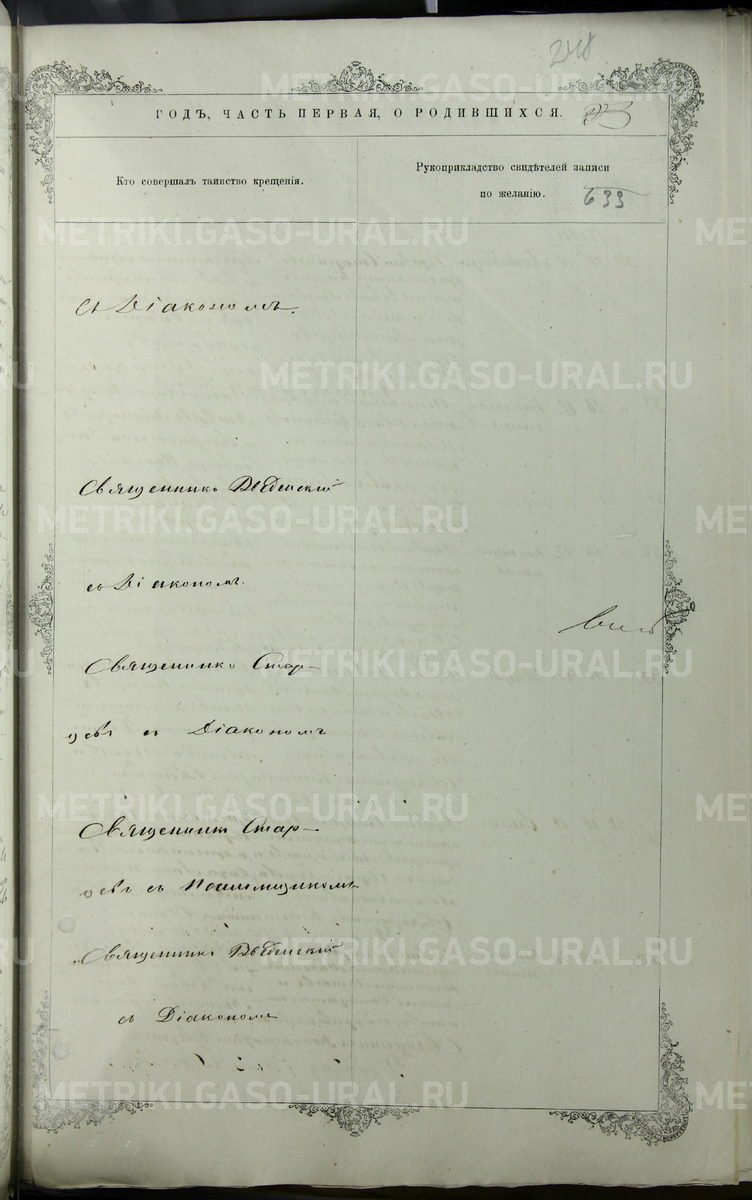 218
ГОДЪ, ЧАСТЬ ПЕРВАЯ, О РОДИВШИХСЯ.
Кто совершалъ таинство крещенія.
Рукоприкладство свидѣтелей записи
по желанію.
633
съ Діакономъ.
Священникъ Введенскій
съ Діакономъ.
Священникъ Стар-
цевъ съ Діакономъ
Священникъ Стар-
цевъ съ Псаломщикомъ
Священникъ Введенскій
съ Діакономъ
METRIKI.GASO-URAL.RU